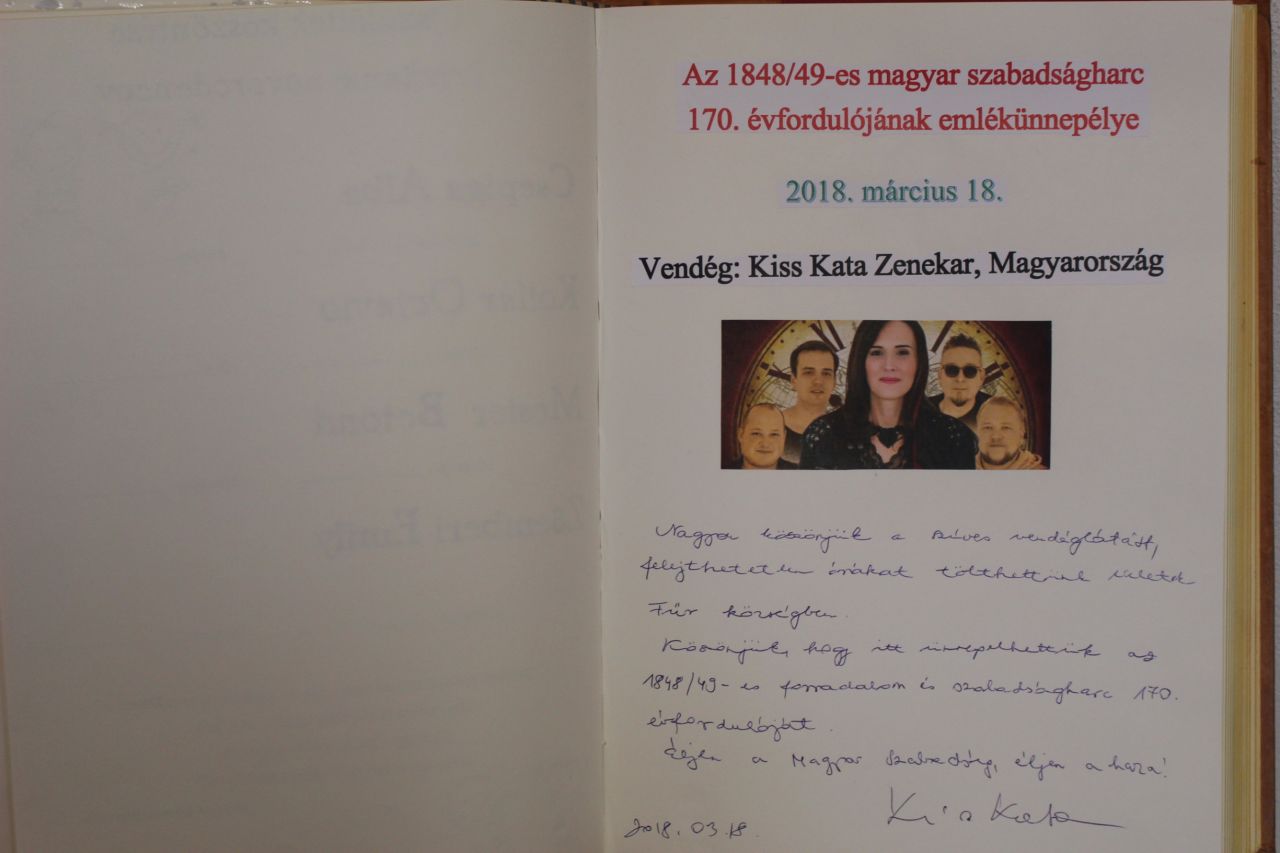 Az 1848/49-es magyar szabadságharc
170. évfordulójának emlékünnepélye
2018. március 18.
Vendég: Kiss Kata Zenekar, Magyarország
Nagyon köszönjük a szíves vendéglátást,
felejthetetlen órákat tölthettünk
Fűr községben.
Köszönjük, hogy itt ünnepelhettük az
1848/49-es forradalom és szabadságharc 170.
évfordulóját.
Éljen a Magyar szabadság, éljen a haza!
Kiss Kata
2018. 03. 18.